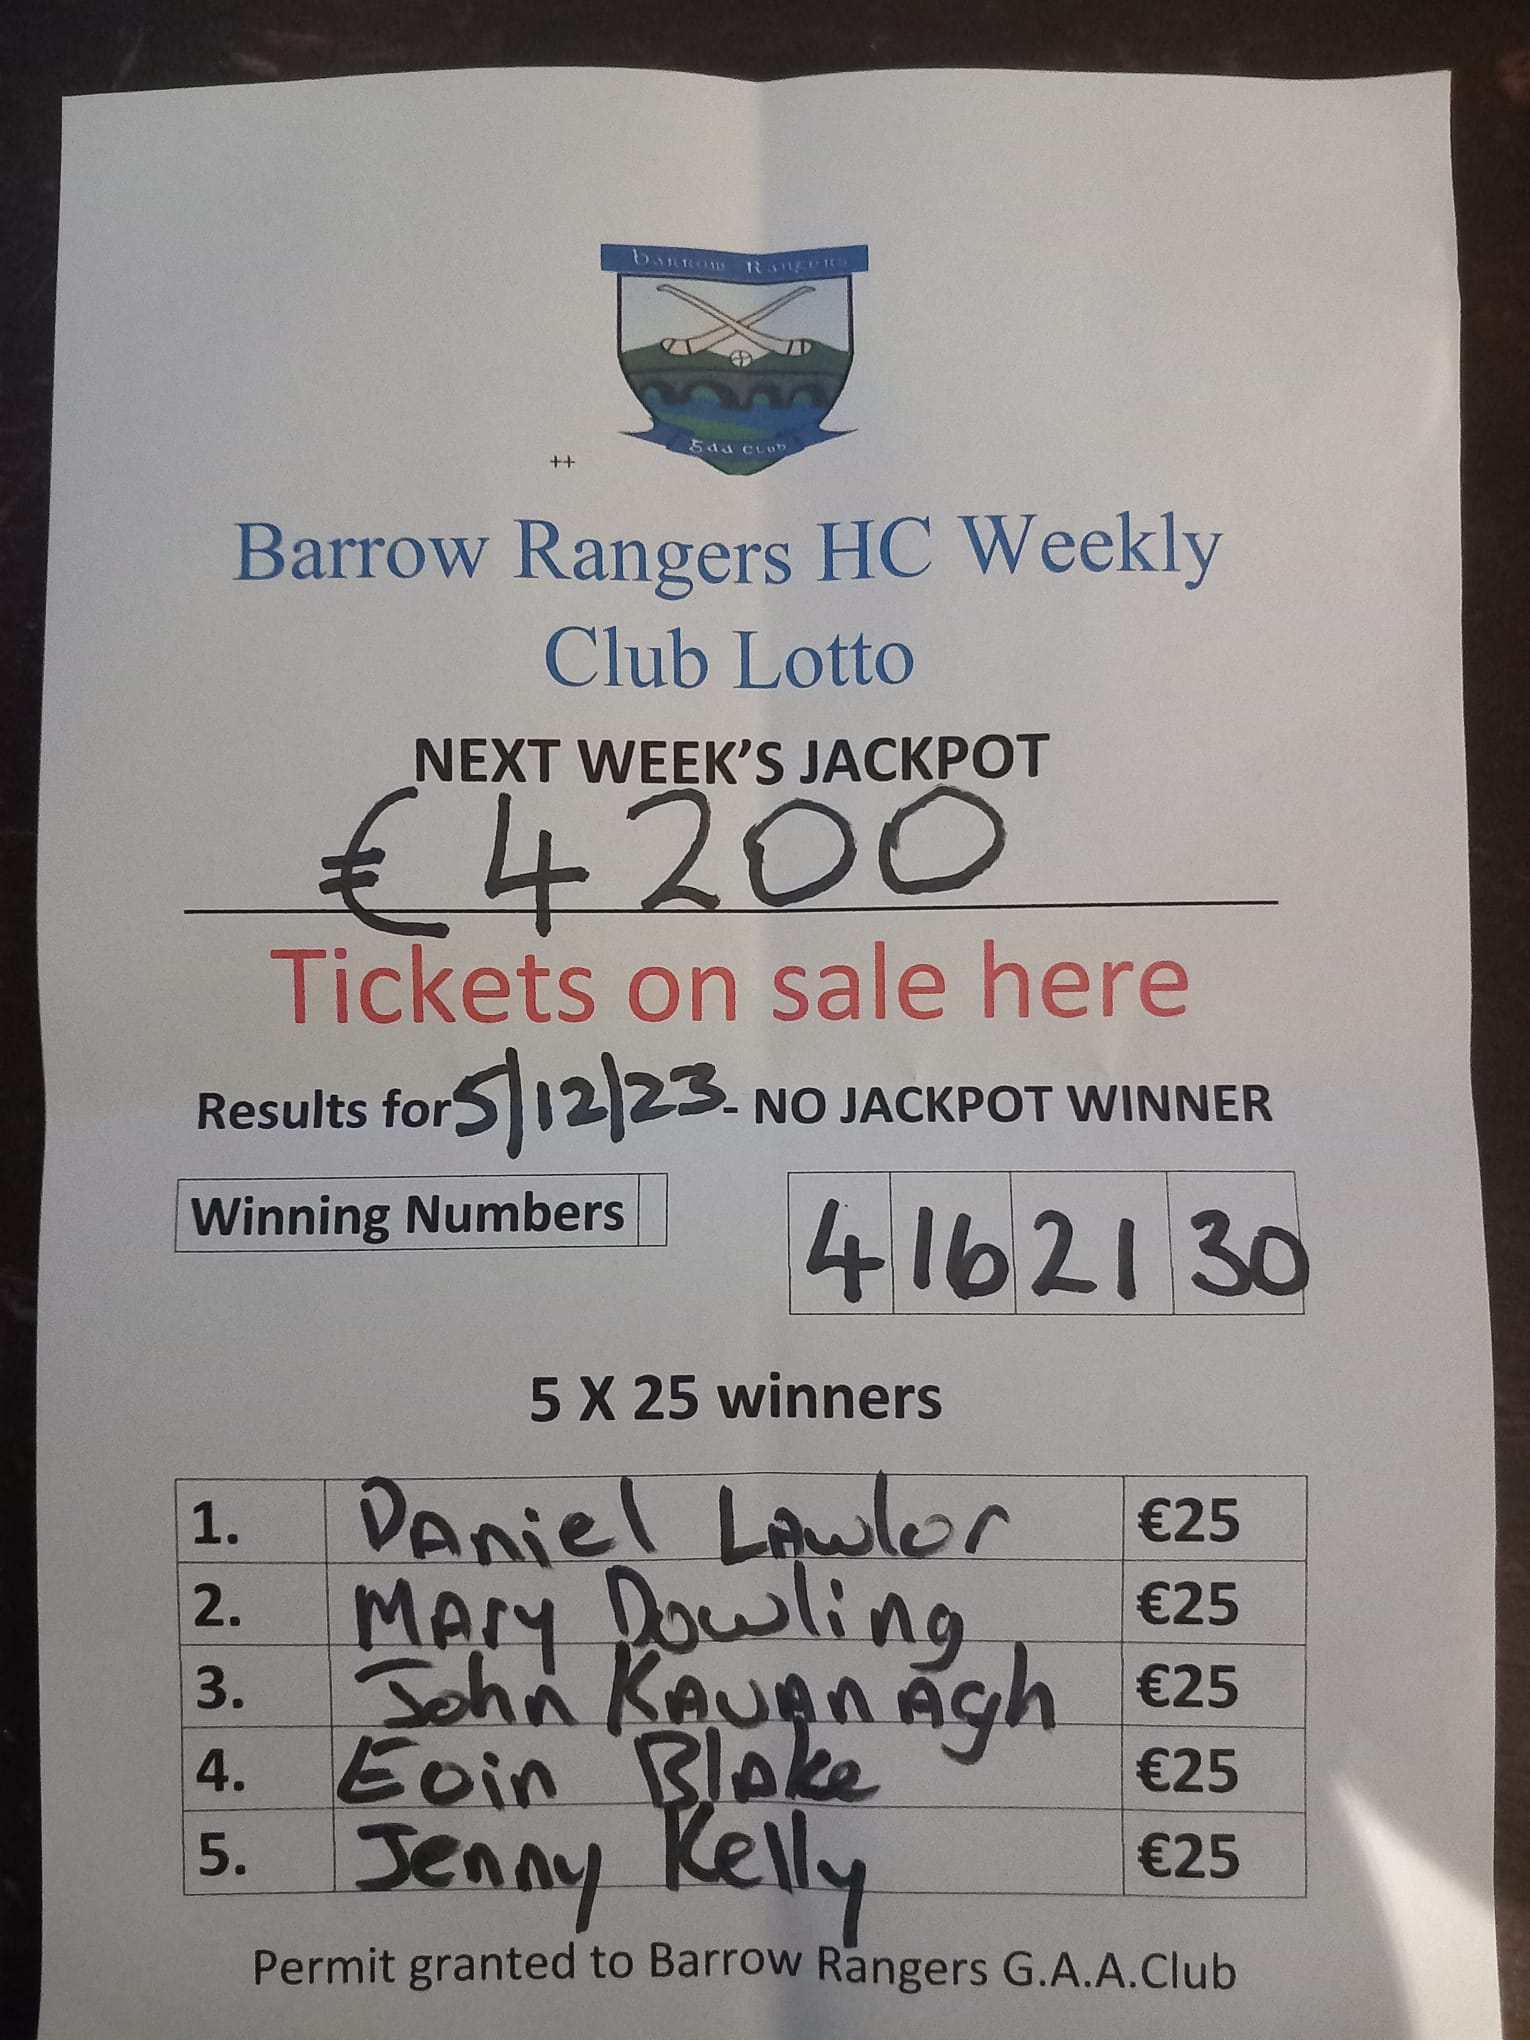 Barrow Rangers
GAA CLUB
++
Barrow Rangers HC Weekly
Club Lotto
NEXT WEEK'S JACKPOT
€4200
Tickets on sale here
Results for 5/12/23 - NO JACKPOT WINNER
Winning Numbers 4 16 21 30
5 X 25 winners
1. DAniel LAwlor €25
2. MAry Dowling €25
3. John KAvAnAgh €25
4. Eoin BlAke €25
5. Jenny Kelly €25
Permit granted to Barrow Rangers G.A.A.Club